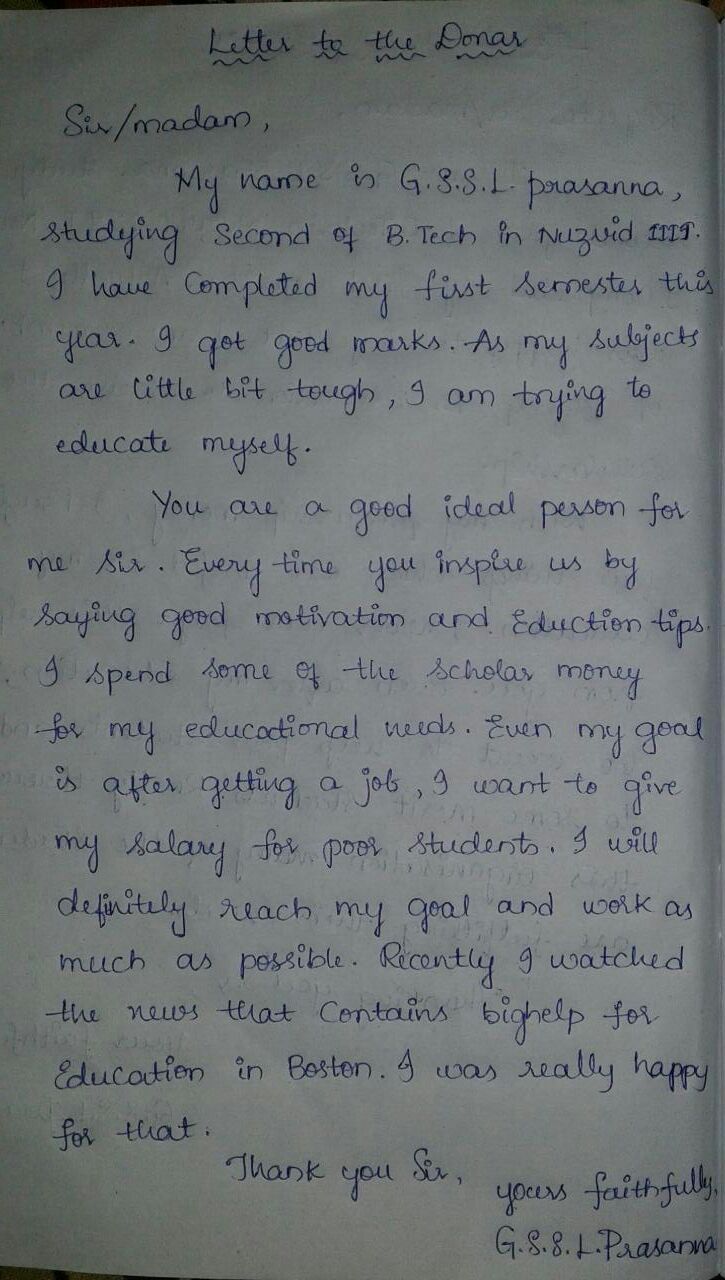 Letter to the Donar
Sir/madam,
My name is G.S.S.L. prasanna,
studying Second of B.Tech in Nuzvid IIIT.
I have Completed my first Semester this
year. I got good marks. As my subjects
are little bit tough, I am trying to
educate myself.
You are a good ideal person for
me Sir. Every time you inspire us by
saying good motivation and Eduction tips.
I spend some of the scholar money
for my educational needs. Even my goal
is after getting a job, I want to give
my salary for poor students. I will
definitely reach my goal and work as
much as possible. Recently I watched
the news that Contains bighelp for
Education in Boston. I was really happy
for that.
Thank you Sir,
yours faithfully,
G.S.S.L.Prasanna